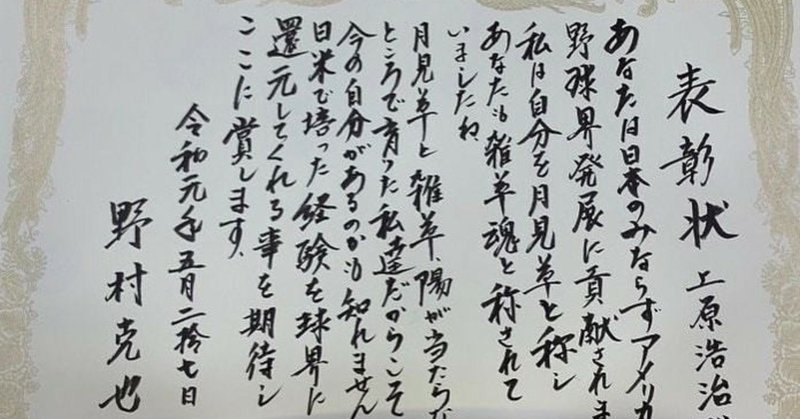 表彰状
上原浩治
あなたは日本のみならずアメリカ
野球界発展に貢献されま
私は自分を月見草と称し
あなたも雑草魂と称されて
いましたね
月見草と雑草、陽が当たらな
ところで育った私達だからこそ
今の自分があるのかも知れません
日米で培った経験を球界に
還元してくれる事を期待し
ここに賞します。
令和元年五月二拾七日
野村克也